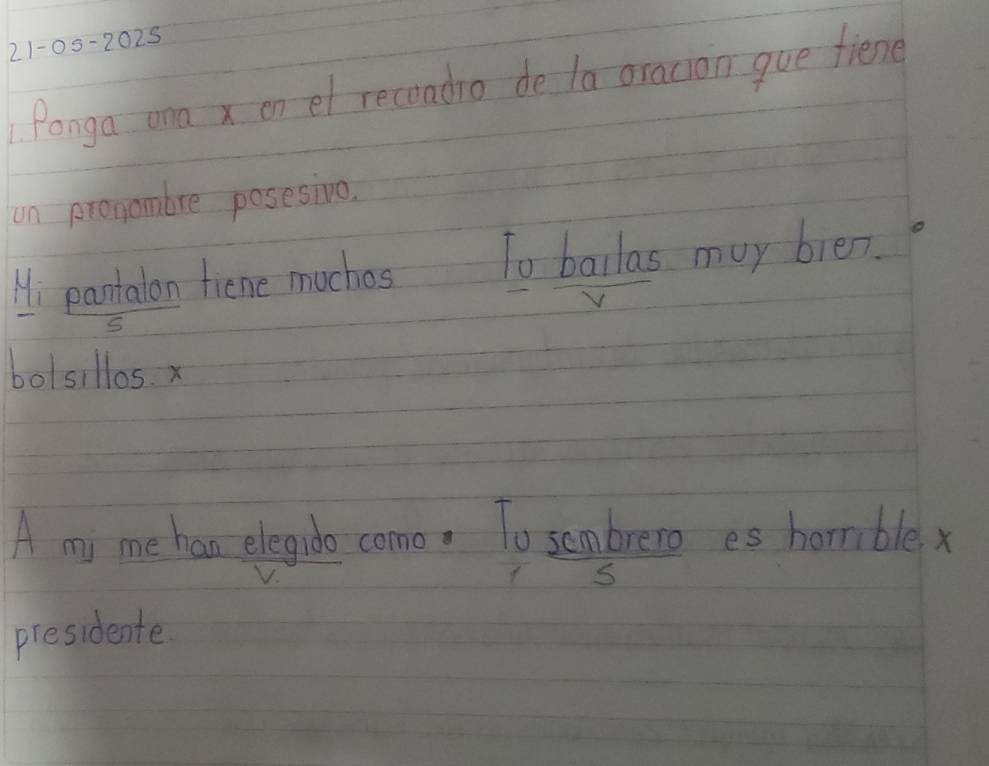 21-05-2025
1. Ponga una x en el recuadro de la oracion que tiene
un pronombre posesivo.
Mi pantalon tiene muchos
S
bolsillos. x
Tu bailas muy bien.
V
A mi me han elegido como
V.
presidente.
Tu sombrero es horrible. x
S